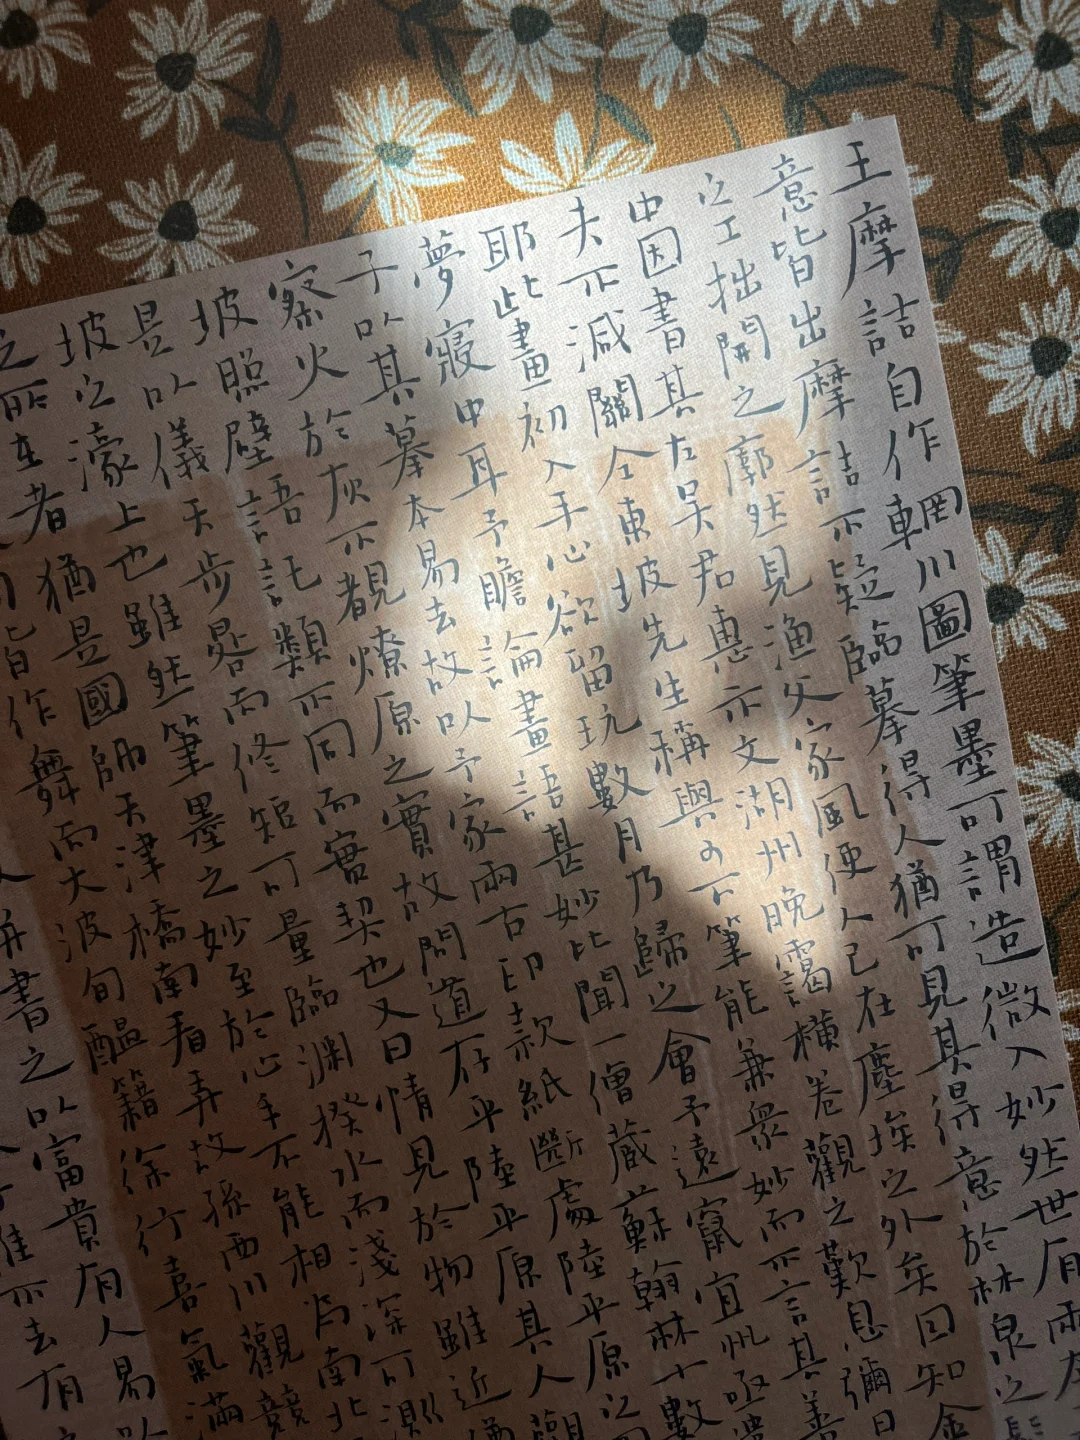 王摩詰自作輞川圖筆墨可謂造微入妙然世有兩本
意皆出摩詰不疑臨摹得人猶可見其得意於林泉之髣
之工拙開之廓然見漁父家風便人已在塵埃之外矣因知金
中因書其左吳君惠示文湖州晚靄橫卷觀之歎息彌日
夫不減關仝東坡先生稱與可下筆能兼衆妙而不言其善
耶此畫初入手心欲留玩數月乃歸之會予遠竄宜州亟
夢寢中耳予瞻論畫語甚妙比聞一僧藏蘇翰林十數
子以其摹本易去故以予家兩古印款紙斷處陸平原之
察火於灰不覩燎原之實故問道存乎陸平原其人觀
坡照壁語託類不同而實契也又曰情見於物雖近猶
是以儀天步晷而修短可量臨淵揆水而淺深可測
坡之濠上也雖然筆墨之妙至於心手不能相爲南北
之所在者猶是國師天津橋南看弄故孫西川觀競
皆作舞而大波旬醞籍徐行喜氣滿
書之以富貴有人易
不去有